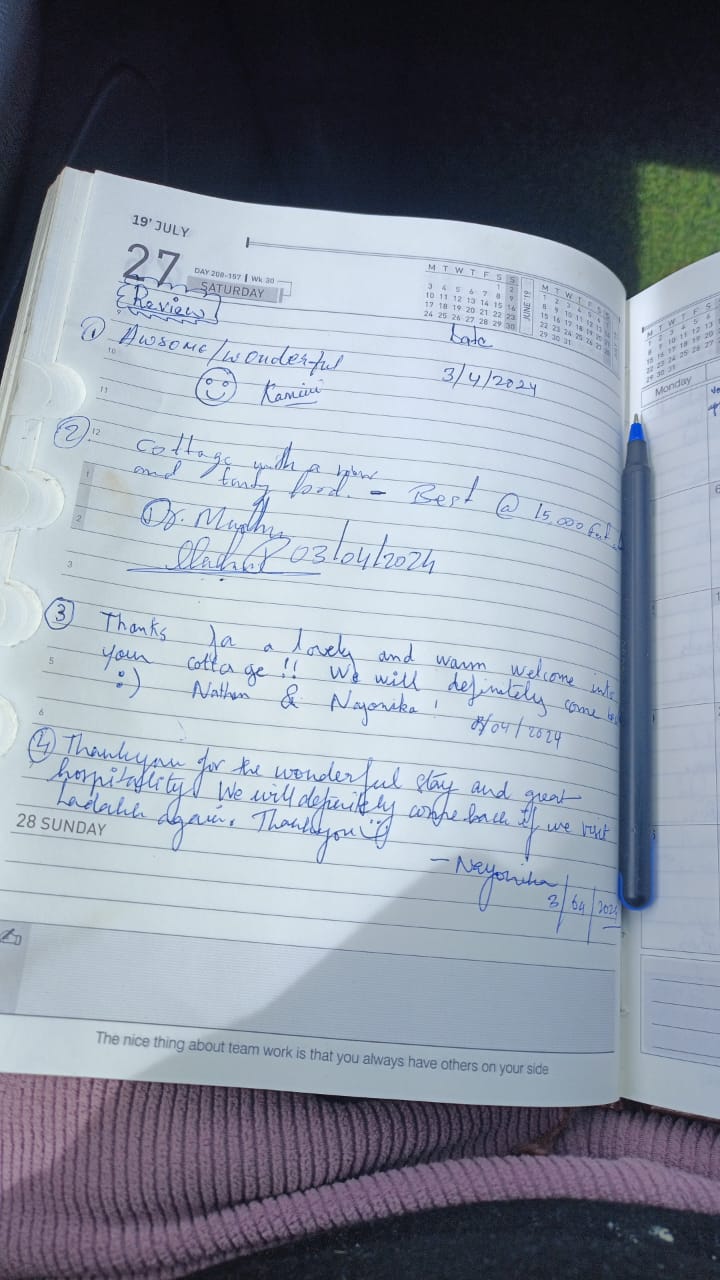 19' JULY
27 DAY 208-157 Wk 30
SATURDAY
M T W T F S S
1 2
3 4 5 6 7 8 9
10 11 12 13 14 15 16
17 18 19 20 21 22 23
24 25 26 27 28 29 30
JUNE '19
M T W T F S S
Review
Date
① Awsome/wonderful
3/4/2024
Kamini
② Cottage with a view
and tasty food. - Best @ 15,000 feet
Dr. Madhu
03/04/2024
③ Thanks for a lovely and warm welcome into
your cottage!! We will definitely come
:) Nathan & Nayonika!
3/04/2024
④ Thankyou for the wonderful stay and great
hospitality. We will definitely come back if we visit
Ladakh again. Thankyou
28 SUNDAY
- Nayonika
3/04/2024
The nice thing about team work is that you always have others on your side
Monday